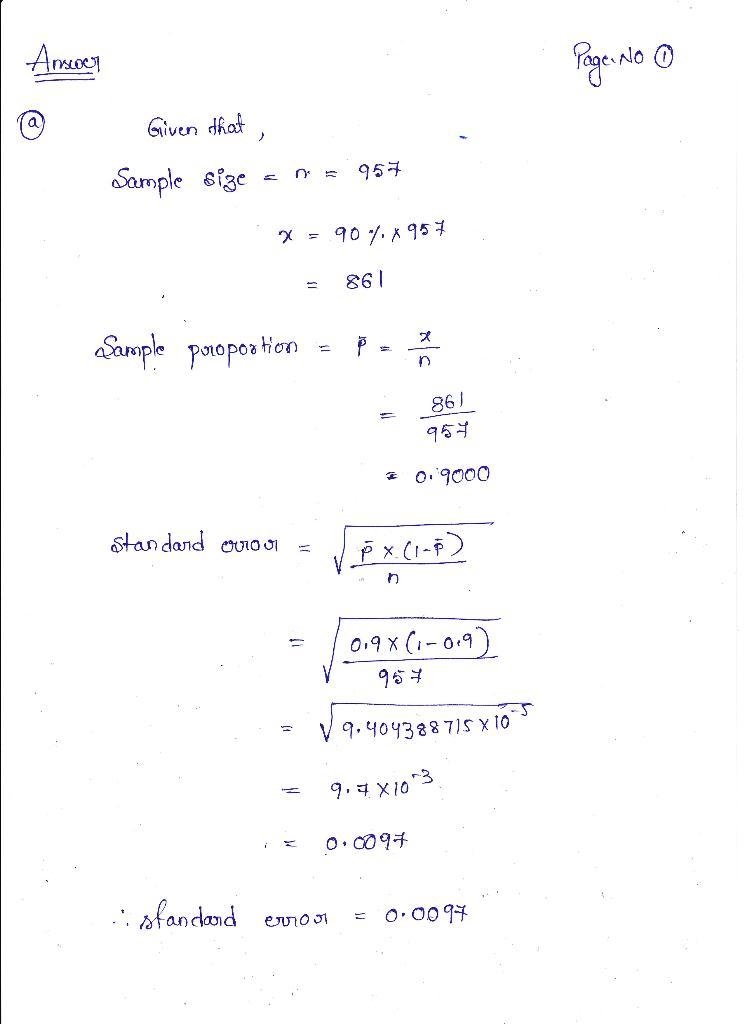 Answer
Page.No ①
ⓐ Given that,
Sample size = n = 957
x = 90 % x 957
= 861
Sample proportion = p̄ = x/n
= 861/957
= 0.9000
Standard error = √(p̄ x (1-p̄)/n)
= √(0.9 x (1-0.9)/957)
= √(9.404388715 x 10⁻⁵)
= 9.7 x 10⁻³
= 0.0097
∴ standard error = 0.0097